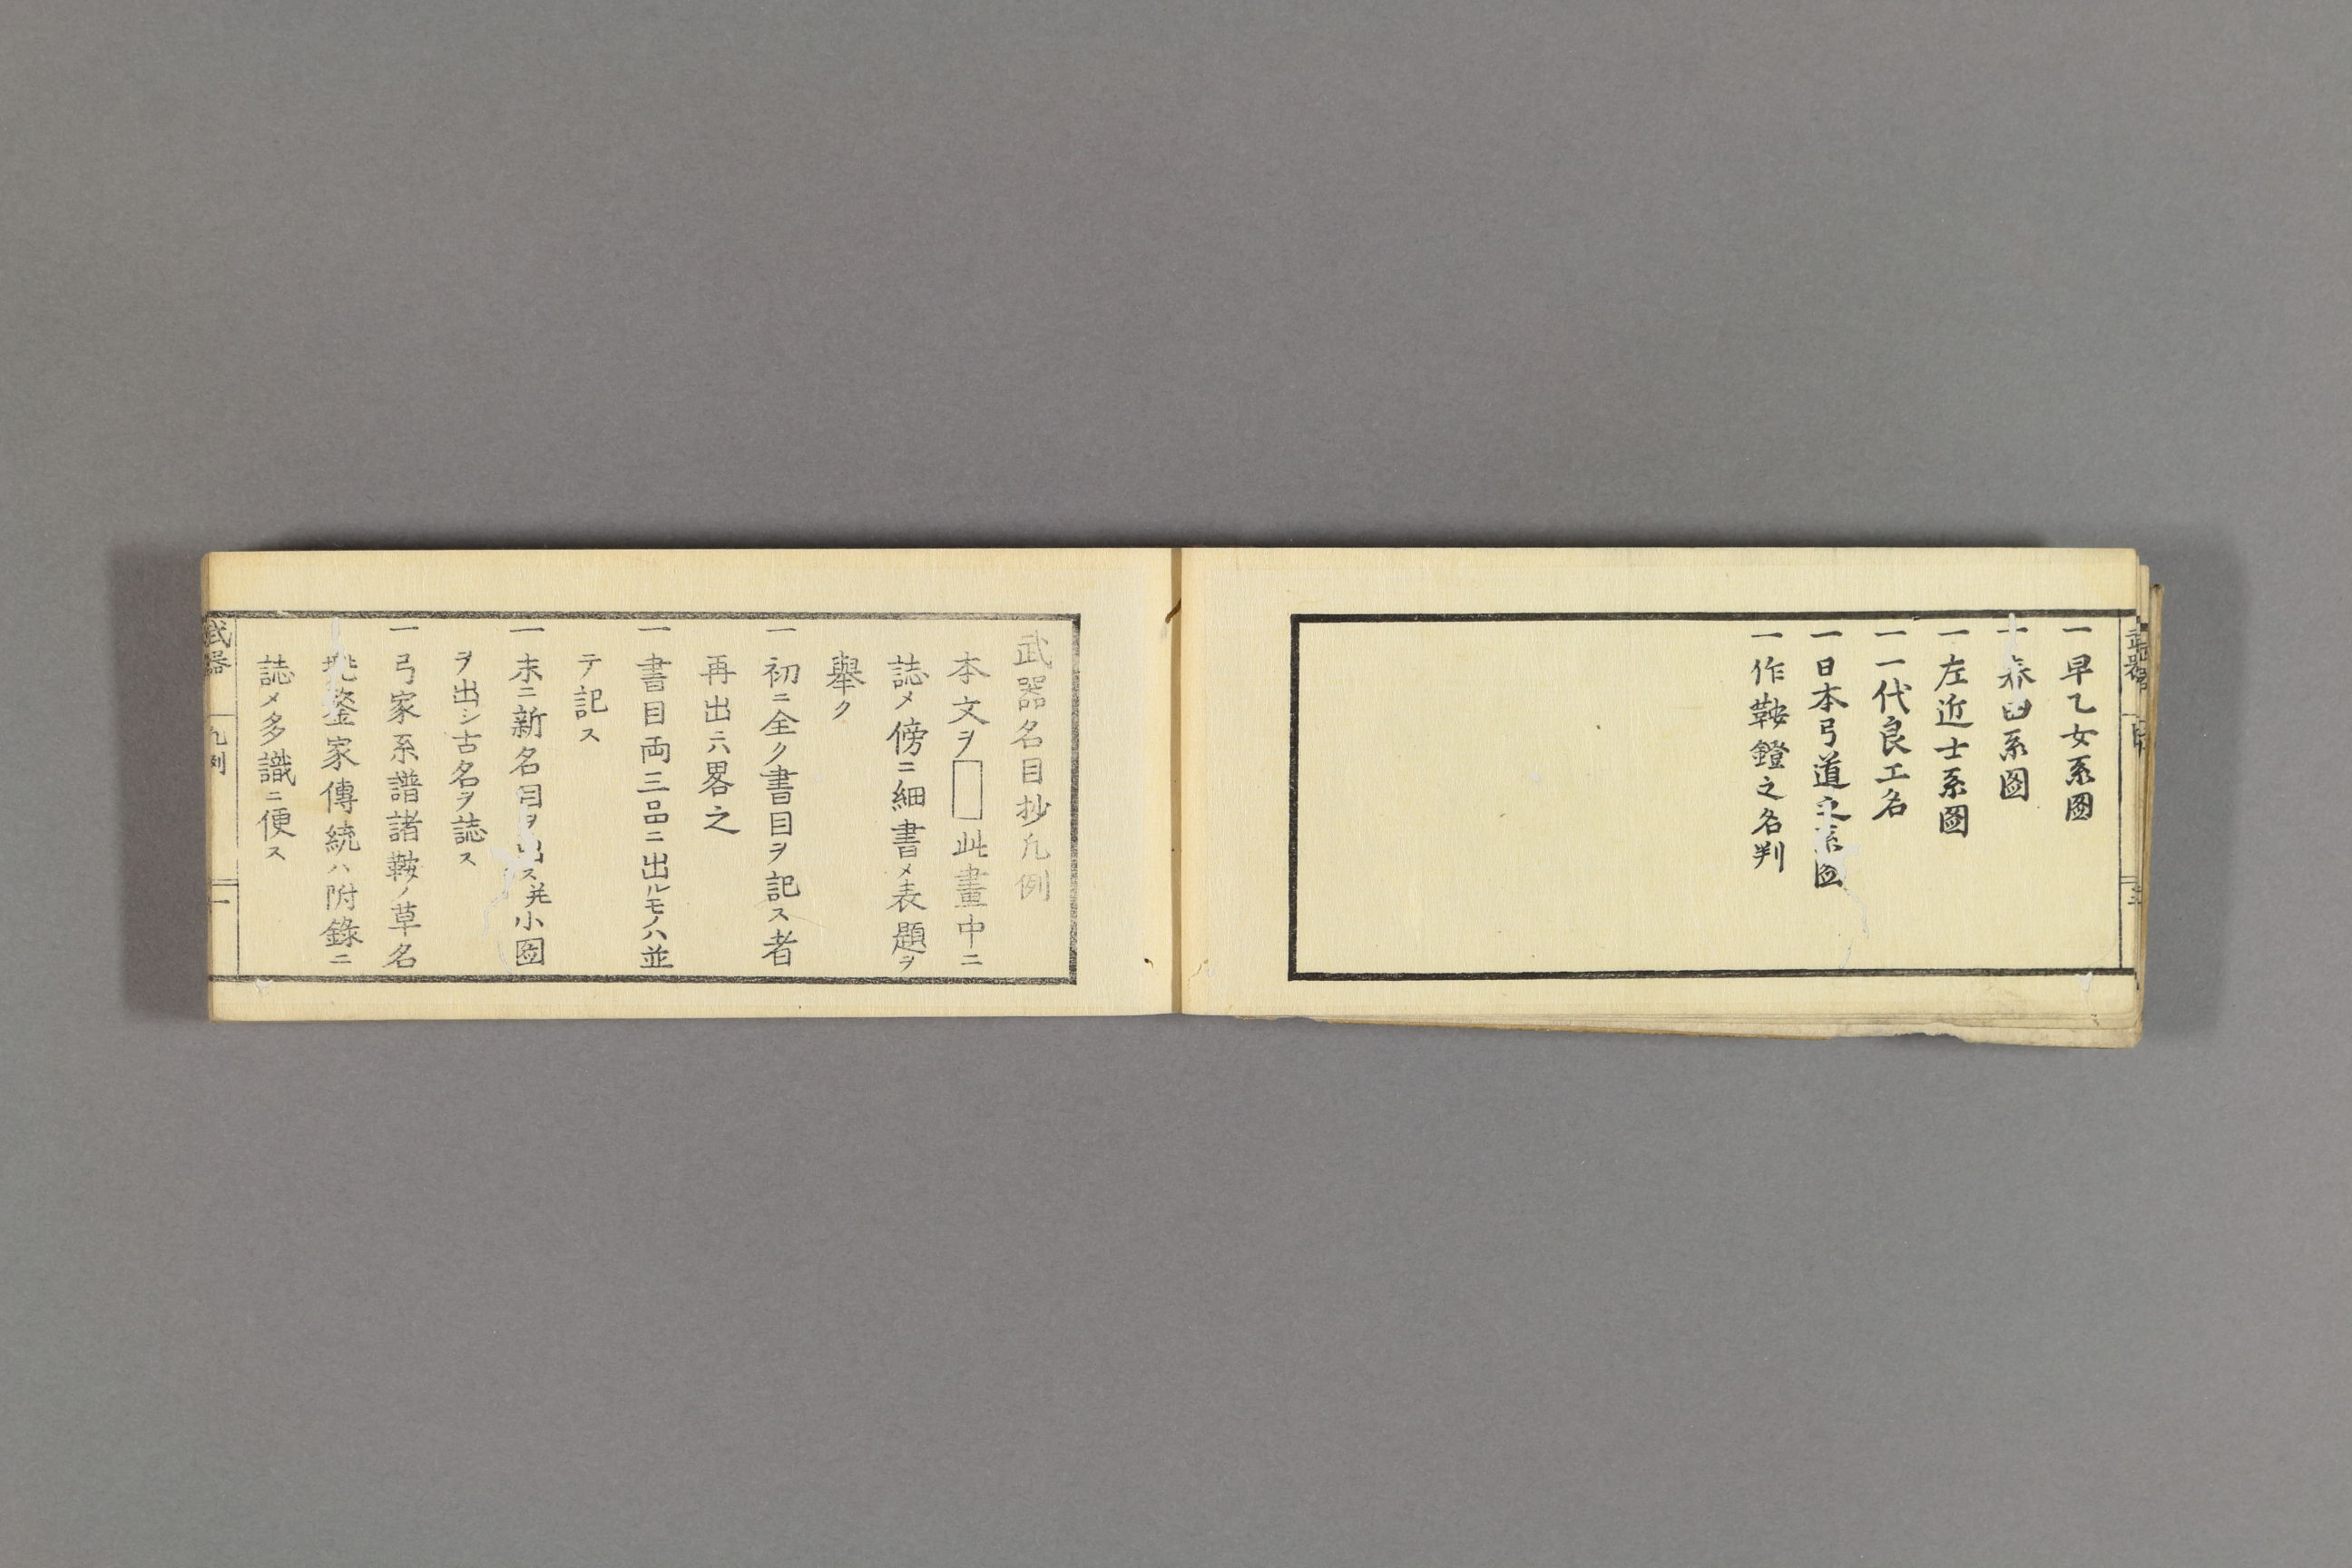 一早乙女系圖
一春田系圖
一左近士系圖
一一代良工名
一日本弓道之系圖
一作鞍鐙之名判
武器名目抄凡例
本文ヲ□此畫中ニ
誌メ傍ニ細書メ表題ヲ
舉ク
一初ニ全ク書目ヲ記ス者
再出ニハ畧之
一書目両三品ニ出ルモノハ並
テ記ス
一末ニ新名目ヲ出ス并小圖
ヲ出シ古名ヲ誌ス
一弓家系譜諸鞍ノ草名
鎧家傳統ハ附錄ニ
誌メ多識ニ便ス
武器
凡例
一